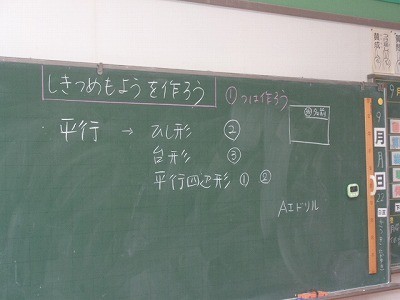 しきつめもようを作ろう
①つは作ろう
平行 → ひし形 ②
台形 ③
平行四辺形 ① ②
AIドリル
9
月
日
22
9月